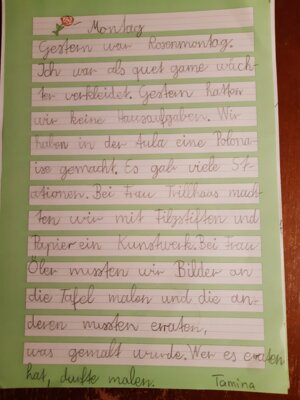 Montag
Gestern war Rosenmontag.
Ich war als quet game wäch-
ter verkleidet. Gestern hatten
wir keine Hausaufgaben. Wir
haben in der Aula eine Polona-
ise gemacht. Es gab viele St-
ationen. Bei Frau Trillhaas mach-
ten wir mit Filzstiften und
Papier ein Kunstwerk. Bei Frau
Öler mussten wir Bilder an
die Tafel malen und die an-
deren mussten erraten,
was gemalt wurde. Wer es erraten
hat, durfte malen. Tamina